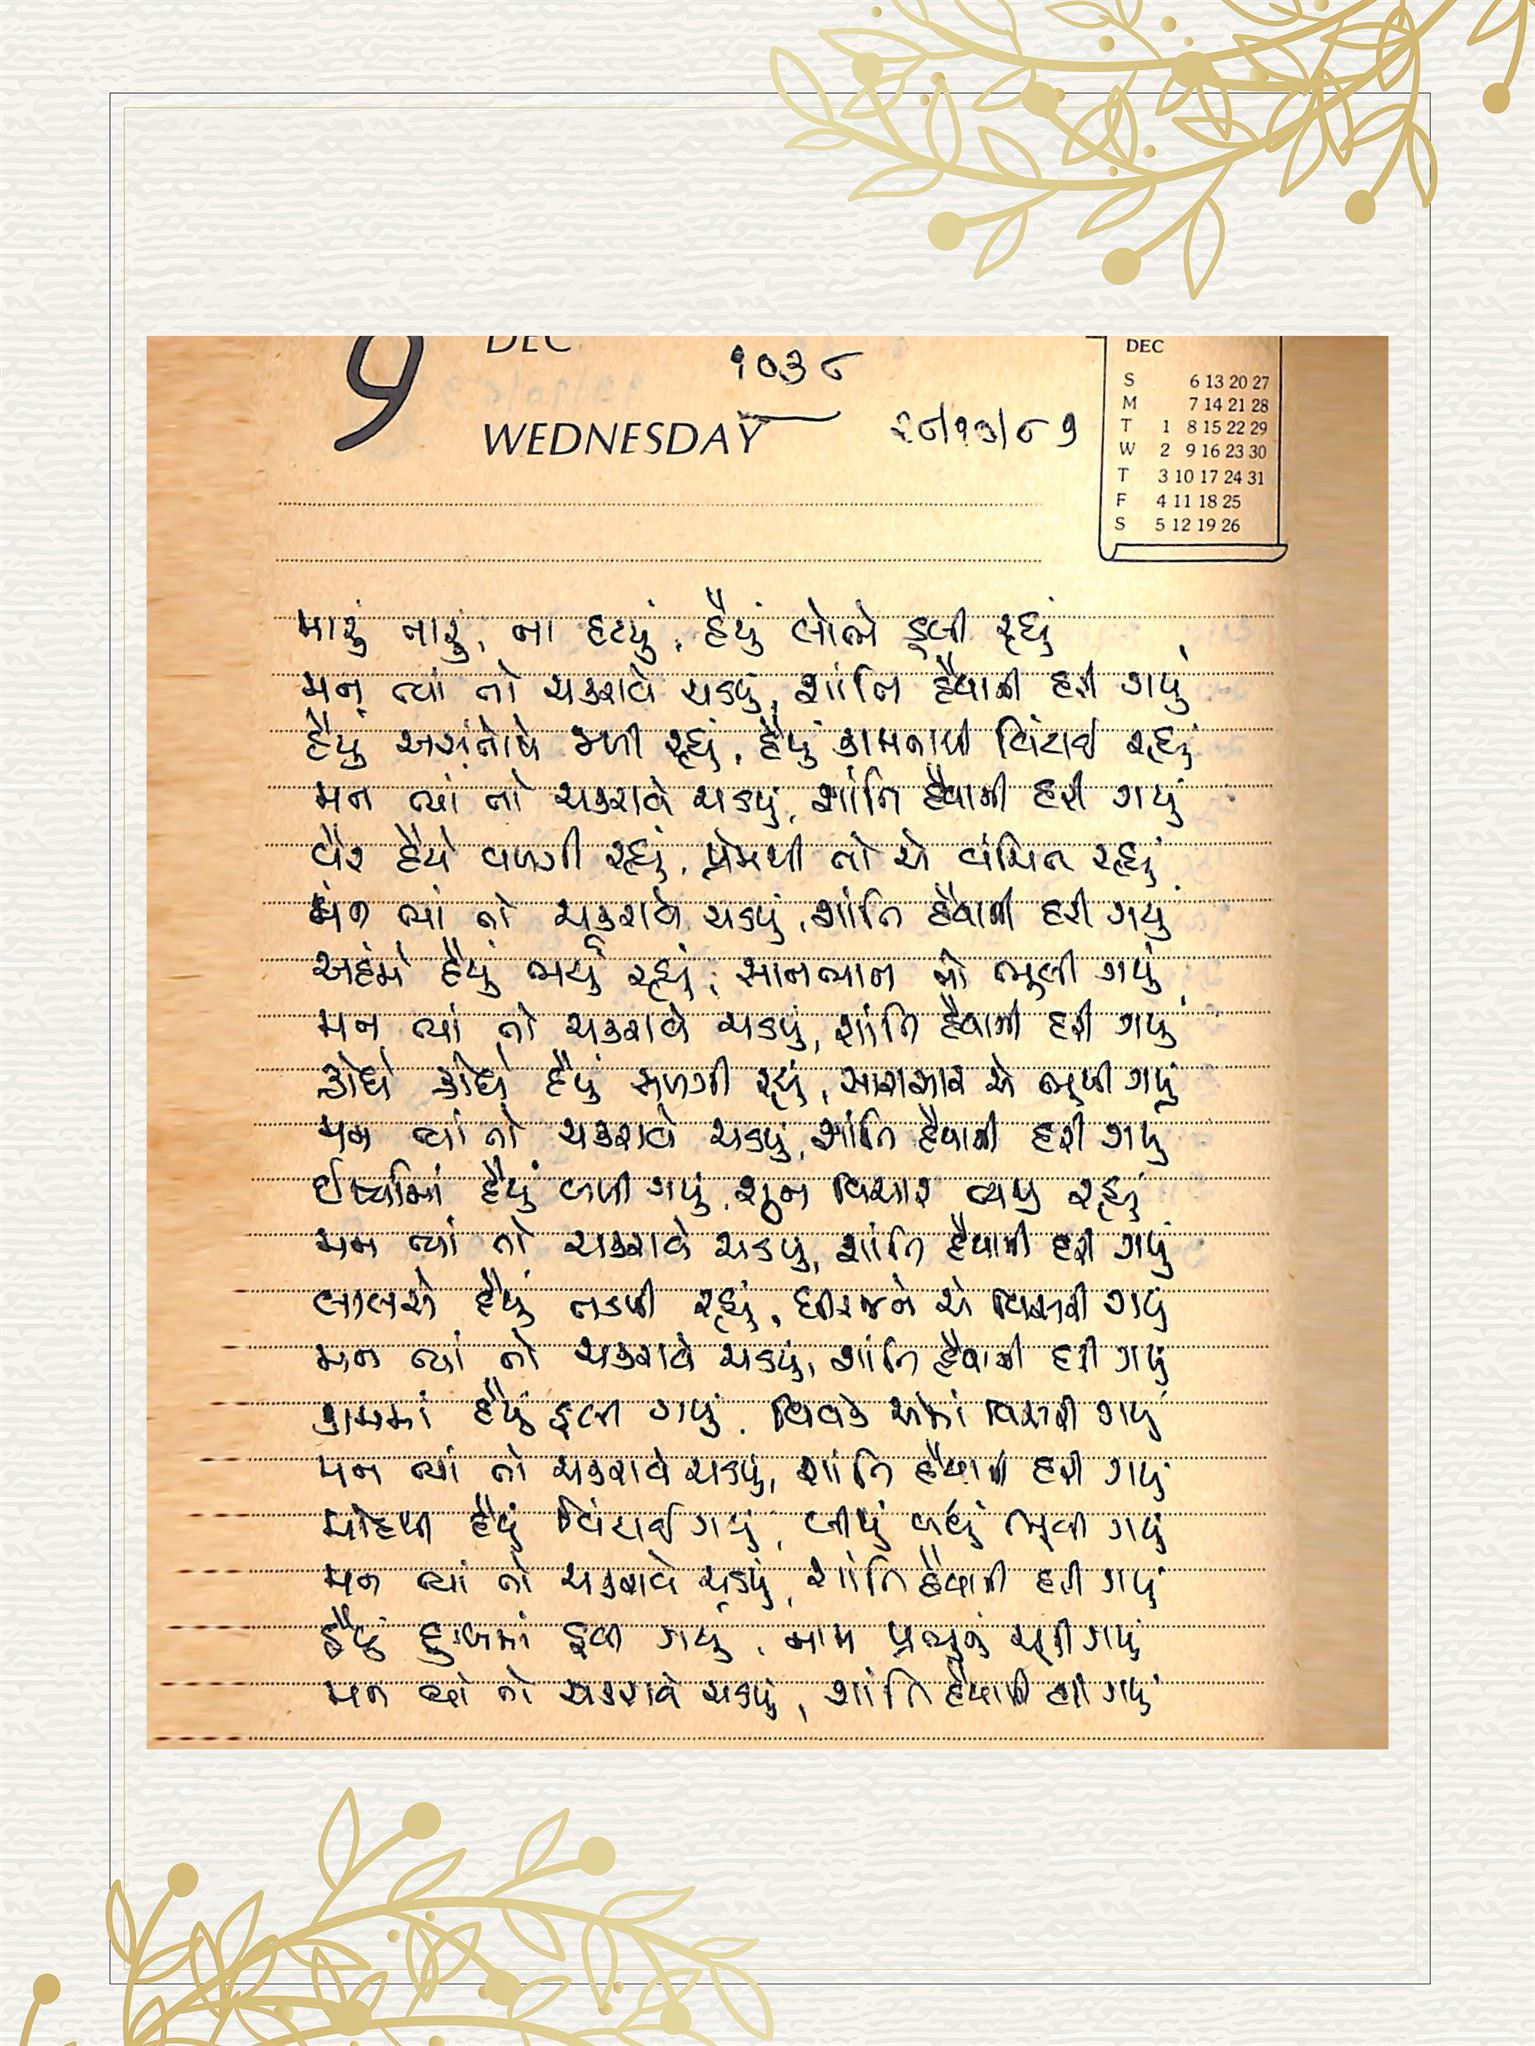 9 DEC
WEDNESDAY
૧૦૩૮
૨૮/૧૦/૮૭
DEC
S 6 13 20 27
M 7 14 21 28
T 1 8 15 22 29
W 2 9 16 23 30
T 3 10 17 24 31
F 4 11 18 25
S 5 12 19 26
મારું તારું, ના હટયું, હૈયું લોભે ડૂબી રહ્યું
મન ત્યાં તો ચકરાવે ચડયું, શાંતિ હૈયાની હરી ગયું
હૈયું અસંતોષે જળી રહ્યું, હૈયું કામનાથી વિંટાઈ રહ્યું
મન ત્યાં તો ચકરાવે ચડયું, શાંતિ હૈયાની હરી ગયું
વૈર હૈયે વળગી રહ્યું, પ્રેમથી તો એ વંચિત રહ્યું
મન ત્યાં તો ચકરાવે ચડયું, શાંતિ હૈયાની હરી ગયું
અહંમે હૈયું ભર્યું રહ્યું, સાનભાન એ ભૂલી ગયું
મન ત્યાં તો ચકરાવે ચડયું, શાંતિ હૈયાની હરી ગયું
ક્રોધે ક્રોધે હૈયું સળગી રહ્યું, સારાસાર એ ભૂલી ગયું
મન ત્યાં તો ચકરાવે ચડયું, શાંતિ હૈયાની હરી ગયું
ઈર્ષ્યામાં હૈયું બળી ગયું, શુભ વિચાર વ્યર્થ રહ્યું
મન ત્યાં તો ચકરાવે ચડયું, શાંતિ હૈયાની હરી ગયું
લાલચે હૈયું તડપી રહ્યું, ધીરજને એ વિસરી ગયું
મન ત્યાં તો ચકરાવે ચડયું, શાંતિ હૈયાની હરી ગયું
કામમાં હૈયું ડૂબી ગયું, વિવેક એમાં વિસરી ગયું
મન ત્યાં તો ચકરાવે ચડયું, શાંતિ હૈયાની હરી ગયું
મોહથી હૈયું વિંટાઈ ગયું, બીજું બધું ભૂલી ગયું
મન ત્યાં તો ચકરાવે ચડયું, શાંતિ હૈયાની હરી ગયું
હૈયું દુઃખમાં ડૂબી ગયું, નામ પ્રભુનું ચૂકી ગયું
મન ત્યાં તો ચકરાવે ચડયું, શાંતિ હૈયાની હરી ગયું